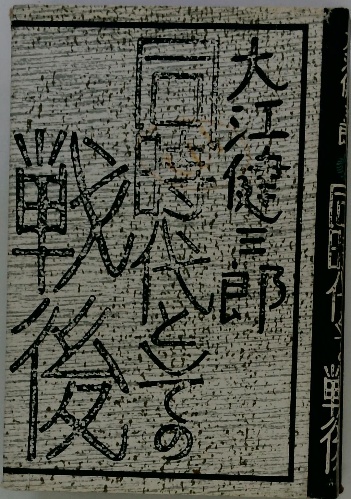 大江健三郎
同時代としての
戦後
大江健三郎 同時代としての戦後